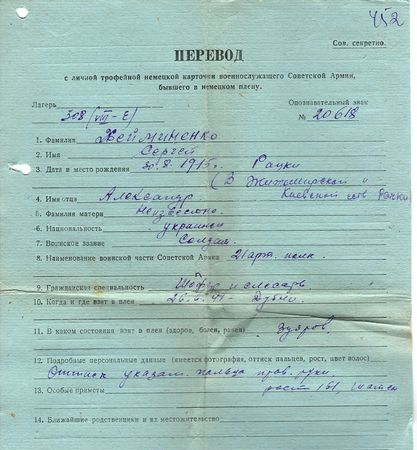 452
Сов. секретно.
ПЕРЕВОД
с личной трофейной немецкой карточки военнослужащего Советской Армии,
бывшего в немецком плену.
Лагерь 308 (VIII-E) Опознавательный знак
№ 20618
1. Фамилия Хейминенко
2. Имя Сергей
3. Дата и место рождения 30.8.1915г. Рачки
(В Житомирской и
4. Имя отца Александр Киевской обл. Рачки)
5. Фамилия матери Неизвестно
6. Национальность украинец
7. Воинское звание Солдат
8. Наименование воинской части Советской Армии 21 арт. полк
9. Гражданская специальность Шофер и слесарь
10. Когда и где взят в плен 26. 41 - Дубно
11. В каком состоянии взят в плен (здоров, болен, ранен) Здоров
12. Подробные персональные данные (имеется фотография, оттиск пальцев, рост, цвет волос)
Оттиск указат. пальца прав. руки
13. Особые приметы рост 161, шатен
14. Ближайшие родственники и их местожительство